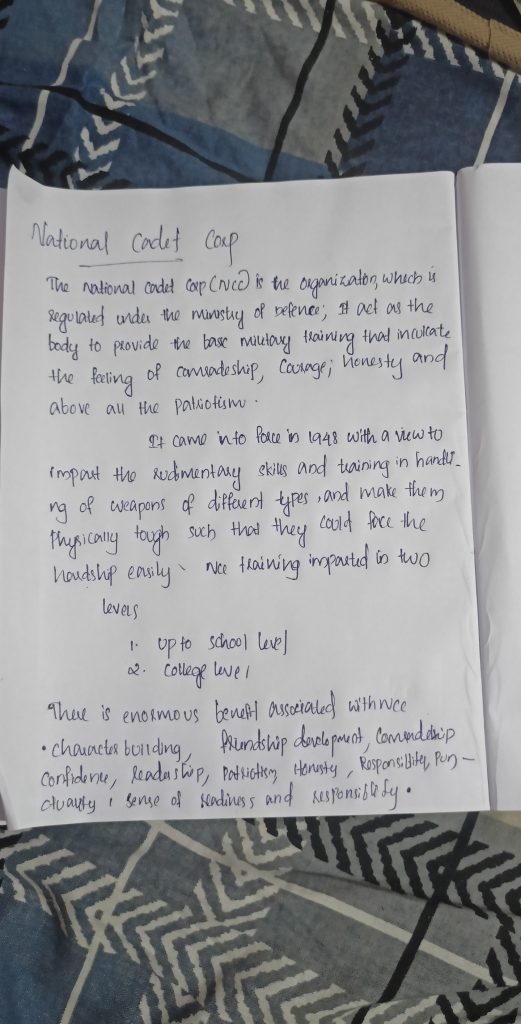 National Cadet Corp
The National Cadet Corp (NCC) is the organization, which is
regulated under the ministry of Defence; It act as the
body to provide the basic military training that inculcate
the feeling of comradeship, Courage; honesty and
above all the Patriotism.
It came into force in 1948 with a view to
impart the rudimentary skills and training in handli-
ng of weapons of different types, and make them
Physically tough such that they could face the
hardship easily. Ncc training imparted in two
levels
1. Up to school level
2. College level
There is enormous benefit associated with ncc
• character building, friendship development, Comradeship
Confidence, leadership, Patriotism, Honesty, Responsibility, Pun-
ctuality, sense of readiness and responsibility.